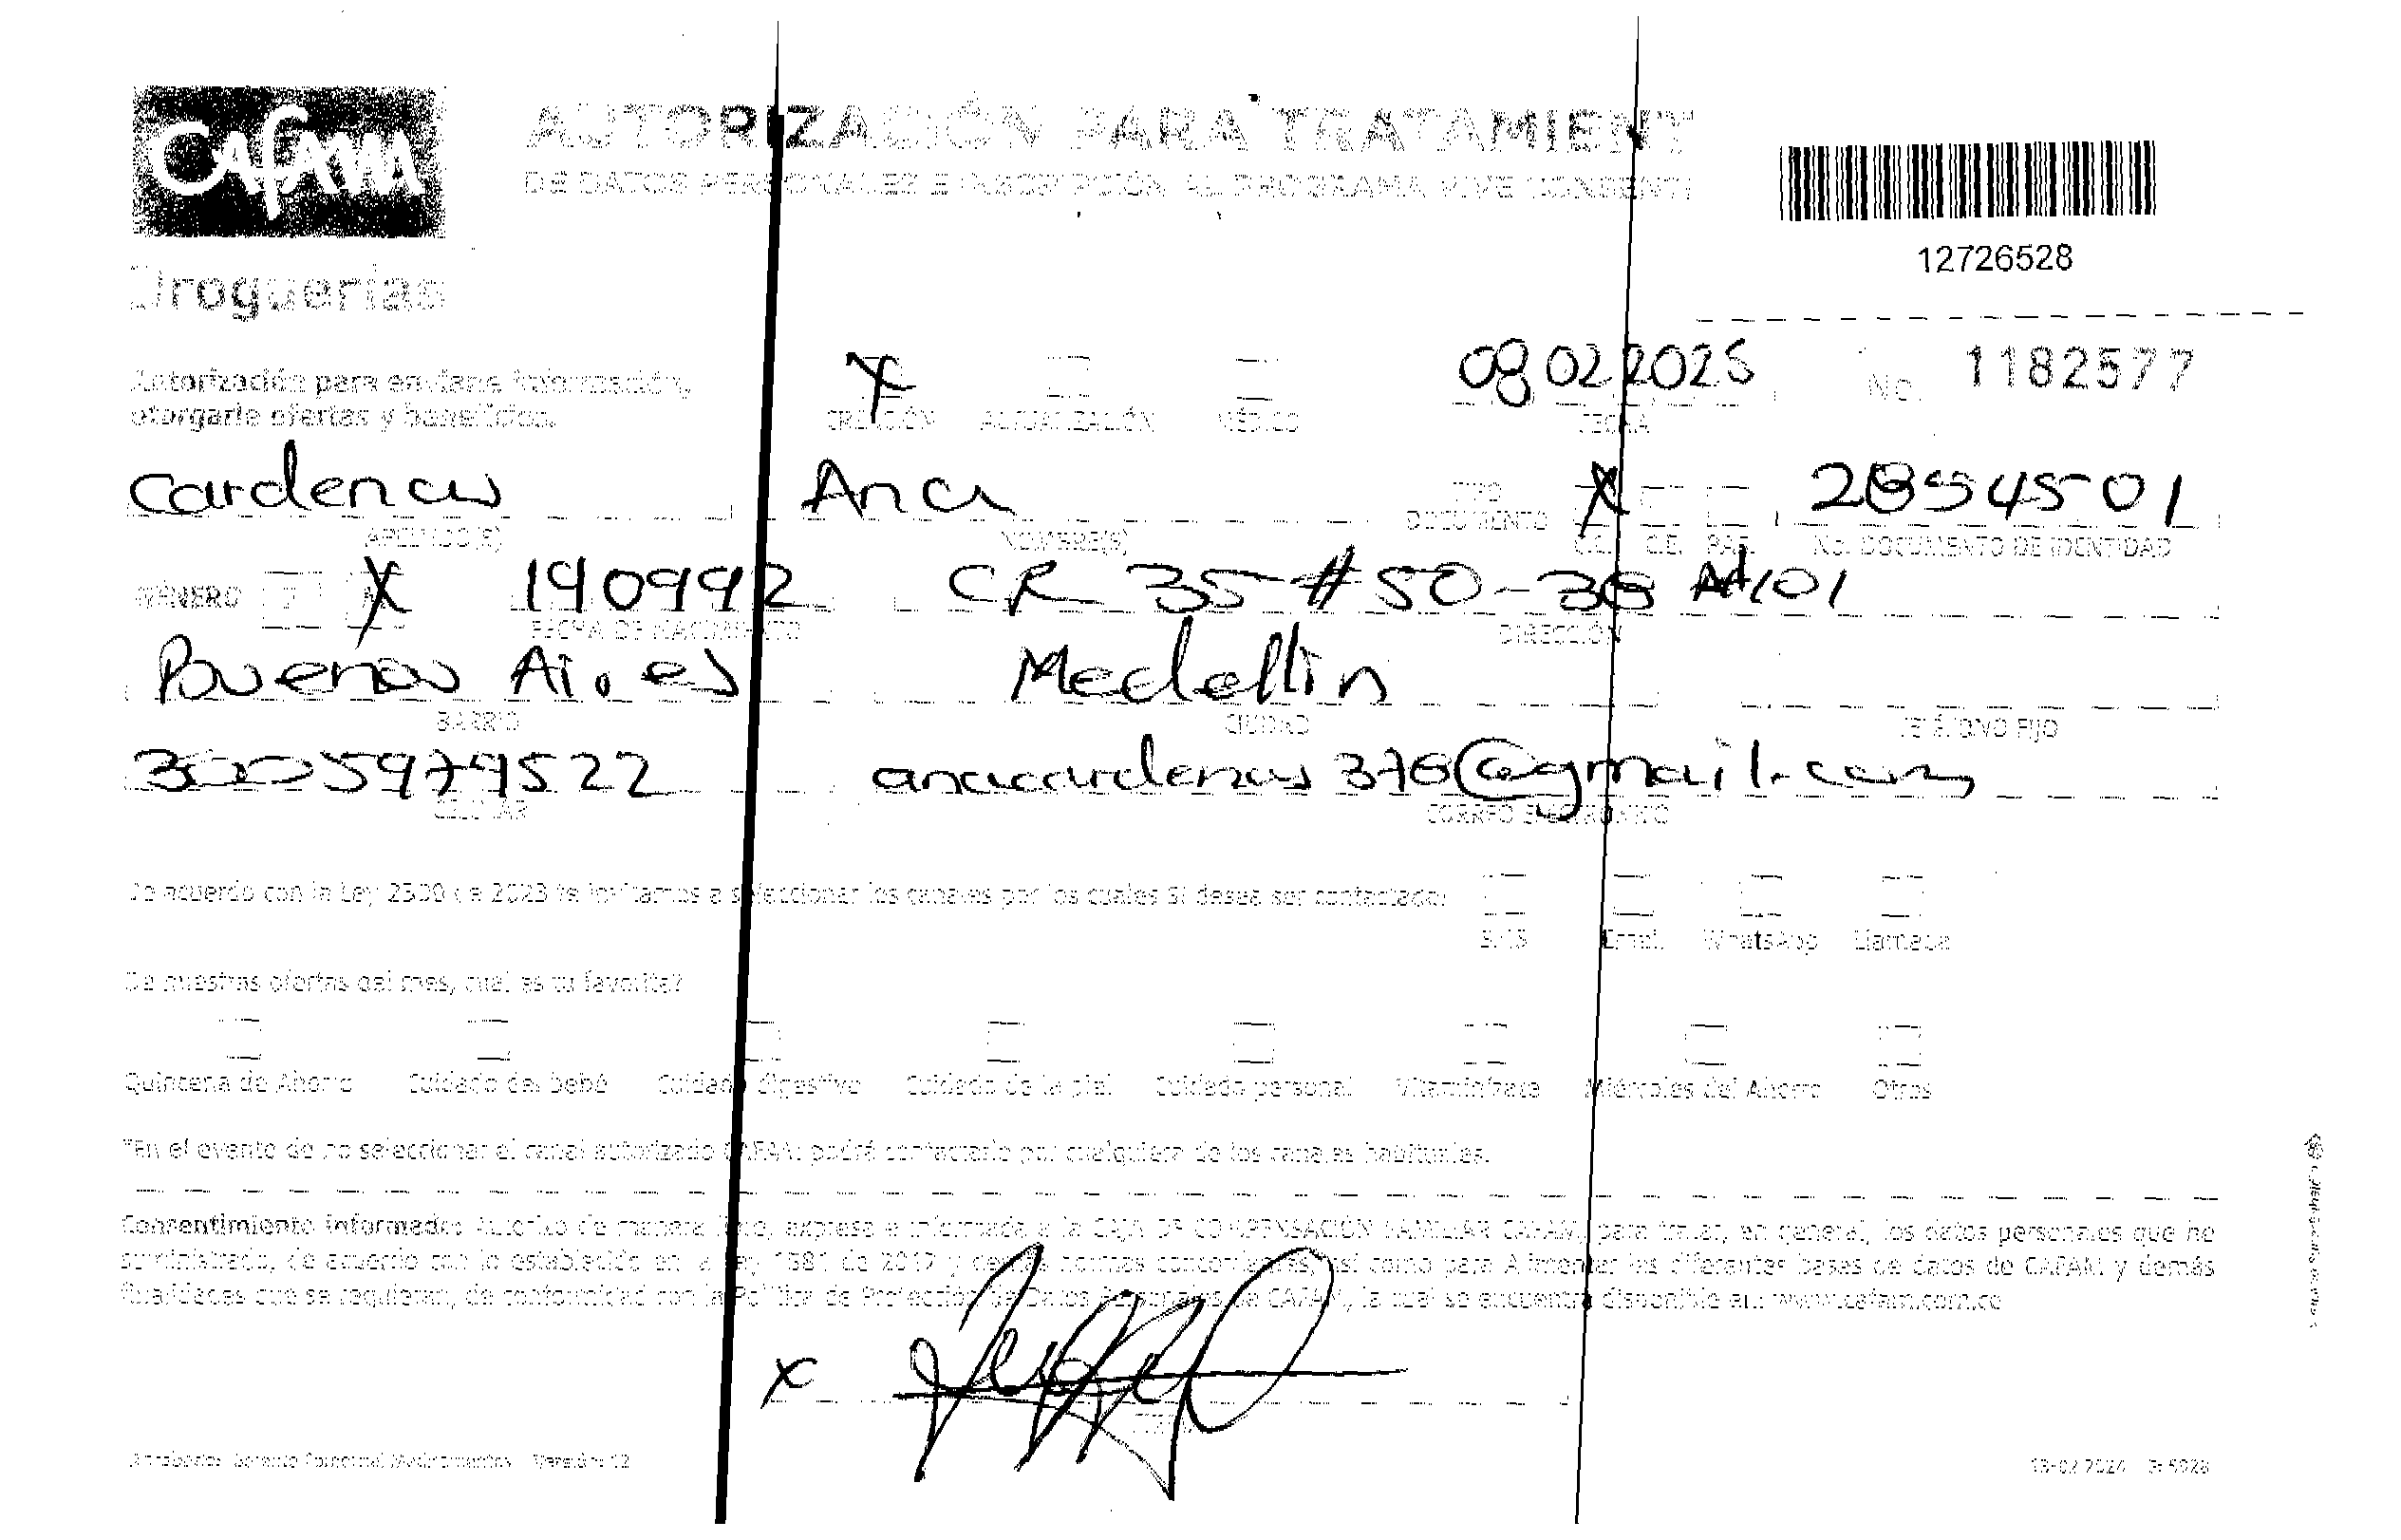 Cafam
Droguerías
AUTORIZACIÓN PARA TRATAMIENT
DE DATOS PERSONALES E INSCRIPCIÓN AL PROGRAMA VIVE CONSENTI
12726528
Autorización para enviarle información,
otorgarle ofertas y beneficios.
X CREACIÓN ACTUALIZACIÓN MÉDICO
08022025 FECHA
No. 1182577
Cardenas Ana X 2854501
APELLIDO(S) NOMBRE(S) TIPO DOCUMENTO C.C. C.E. PAS. No. DOCUMENTO DE IDENTIDAD
GÉNERO F M X 140992 CR 35 # 50-38 101
FECHA DE NACIMIENTO DIRECCIÓN
Buenos Aires Medellin
BARRIO CIUDAD TELÉFONO FIJO
anacardenas376@gmail.com
CELULAR CORREO ELECTRÓNICO
De acuerdo con la Ley 2300 de 2023 te invitamos a seleccionar los canales por los cuales SI desea ser contactado:
SMS Email WhatsApp Llamada
De nuestras ofertas del mes, cual es tu favorita?
Quincena de Ahorro Cuidado del bebé Cuidado digestivo Cuidado de la piel Cuidado personal Vitamínfzate Miércoles del Ahorro Otros
*En el evento de no seleccionar el canal autorizado CAFAM podrá contactarlo por cualquiera de los canales habituales.
Consentimiento Informado: Autorizo de manera libre, expresa e informada a la CAJA DE COMPENSACIÓN FAMILIAR CAFAM, para tratar, en general, los datos personales que he
suministrado, de acuerdo con lo establecido en la Ley 1581 de 2012 y demás normas concordantes, así como para Alimentar las diferentes bases de datos de CAFAM y demás
finalidades que se requieran, de conformidad con la Política de Protección de Datos Personales de CAFAM, la cual se encuentra disponible en: www.cafam.com.co
X
FIRMA
Aprobado: Gerente Comercial Medicamentos Versión: 12